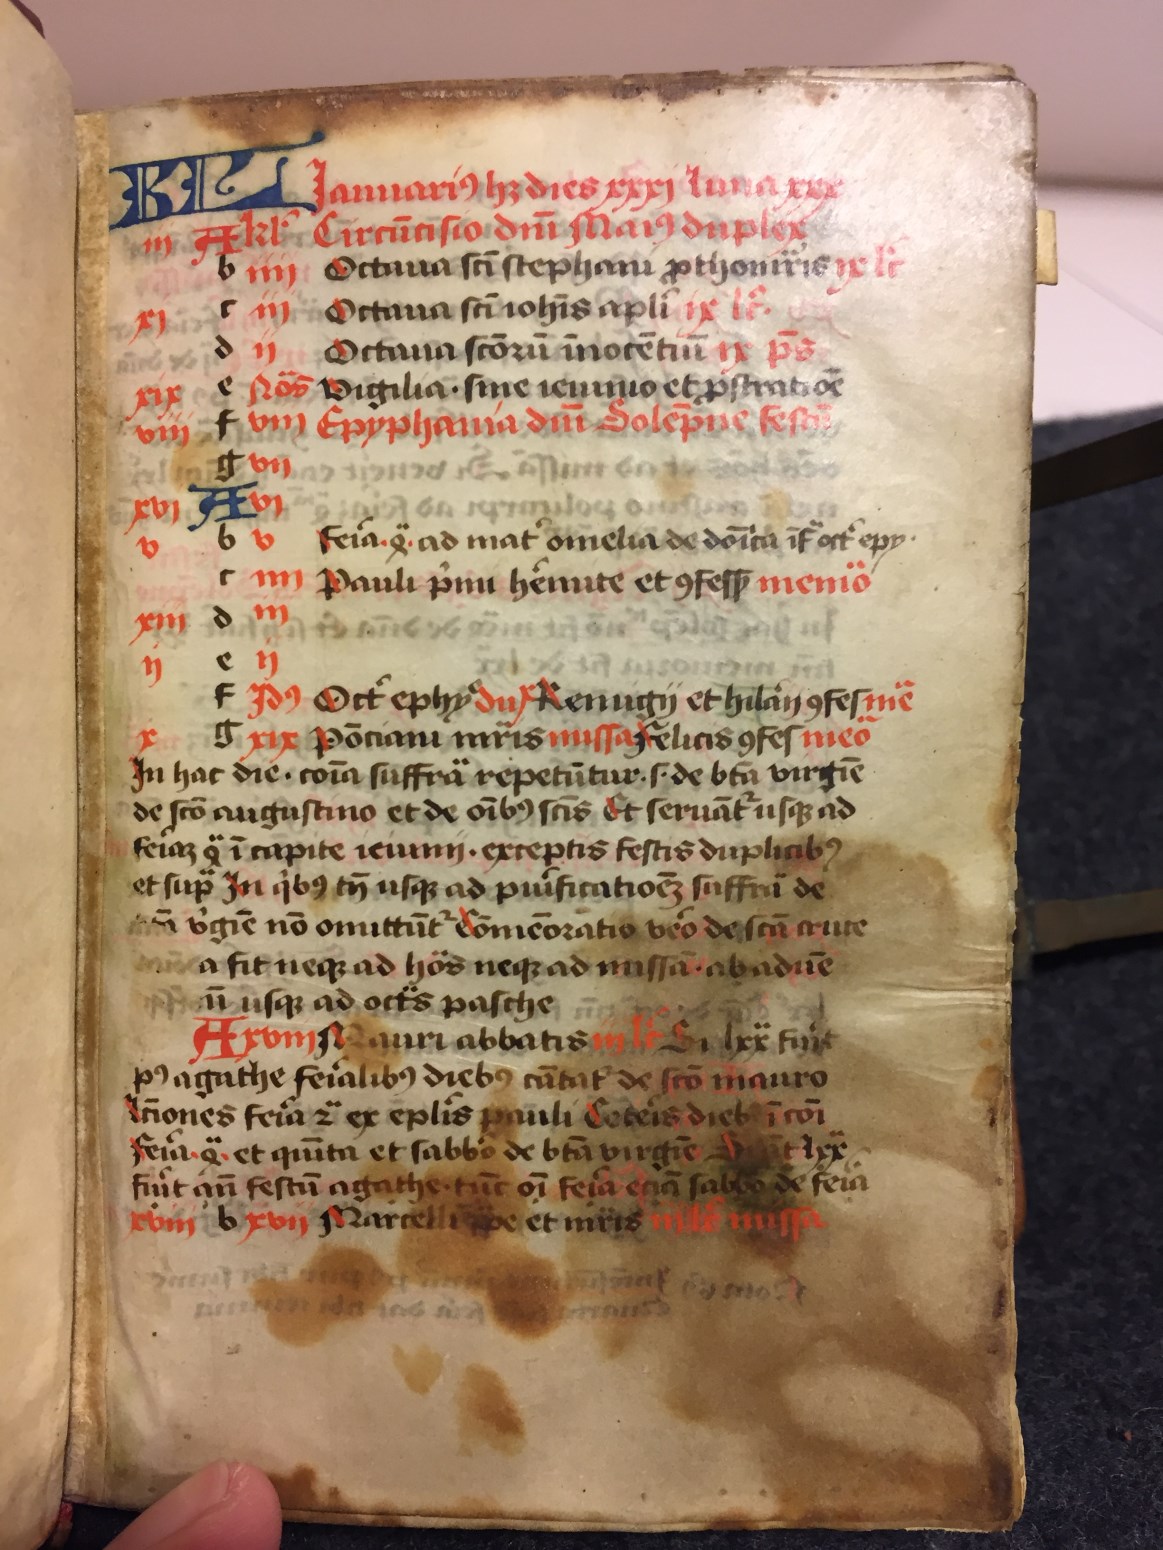 KL Januariꝰ hꝫ dies xxxi luna xxx
iii A kl' Circūcisio dnī Maiꝰ duplex
b iiii Octaua scī stephani ꝓthomr̄is ix lc̄
xi c iii Octaua scī iohīs apli ix lc̄
d ii Octaua scōrū īnocētiū ix p̄s
xix e Nōs Vigilia · sine ieiunio et ꝓstratiōe
viii f viii Epyphania dnī Solēpne festū
g vii
xvi A vi
v b v feīa · q̄ · ad mat' omelia de dōīca īf oct' epy ·
c iiii Pauli p'mi hēmite et ꝯfess memō
xiii d iii
ii e ii
f Idꝰ Oct' ephy du Remigii et hilarii ꝯfes mē
x g xix Pōciani mr̄is missa Felicis ꝯfes meō
In hac die · cōia suffrā repetūtur · s · de btā virgīe
de scō augustino et de oībꝰ scīs Et seruāt' usqꝫ ad
feīaꝫ q̄ ī capite ieiunii · exceptis festis duplicibꝰ
et sup̄ In q'bꝰ tn̄ usqꝫ ad puīficatioēꝫ suffrā de
v'gīe nō omittūt' Cōmēoratio vēo de scā cruce
a fit neqꝫ ad hōs neqꝫ ad missā · ab aduē
usqꝫ ad oct̄s pasche
A xviii Mauri abbatis iii lc̄ Si lxx fuīt
pꝰ agathe feīalibꝰ diebꝰ cātat' de scō mauro
lc̄iones feīa 2ā ex eplīs pauli Cetēis dieb' ī cōi
feīa · q̄ · et quīta et sabbō de btā virgīe lxx
fuīt an̄ festū agathe · tūc oī feīa eciā sabbō de feīa
xviii b xvii Marcelli ꝑpe et mr̄is iii lc̄ missa